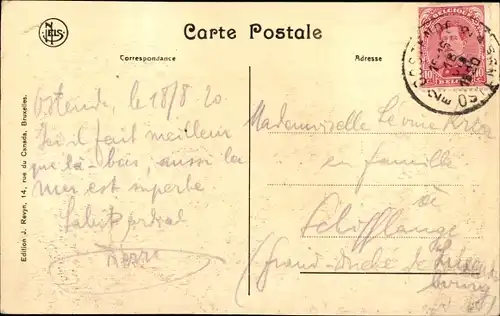 NELS
Carte Postale
Correspondance
Adresse
BELGIQUE
10 10
BELGIË
OOSTENDE
OSTENDE
Ostende, le 18/8 20.
Ici il fait meilleur
que là-bas, aussi la
mer est superbe
Salut cordial
Mademoiselle Léonie
en famille
à
Schifflange
(Grand-Duché de Luxem
bourg)
Edition J. Revyn, 14, rue du Canada, Bruxelles.